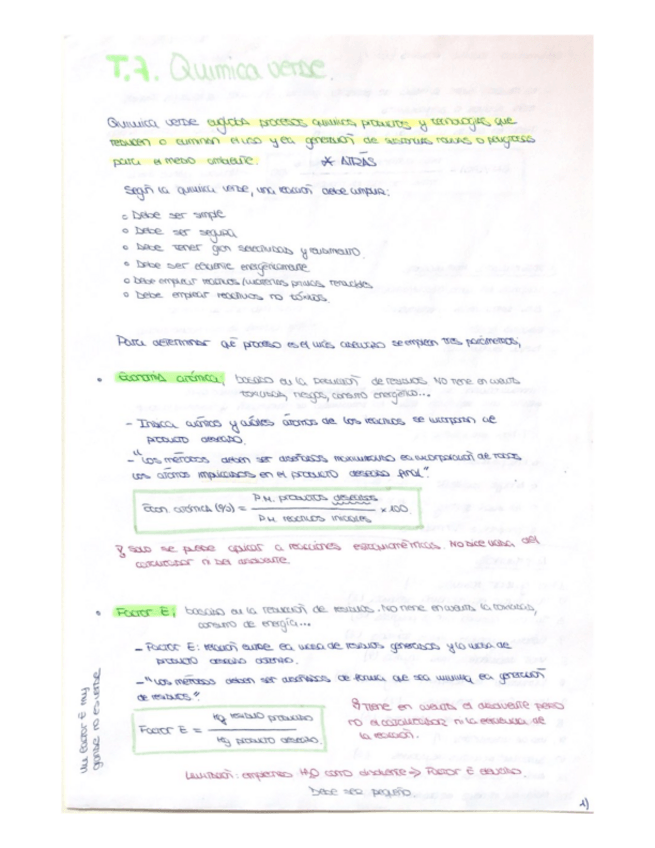 T.7. Química verde.
Química verde engloba procesos químicos, productos y tecnologías que
reducen o eliminan el uso y la generación de sustancias nocivas o peligrosas
para el medio ambiente. * ATRÁS
Según la química verde, una reacción debe cumplir:
o Debe ser simple
o Debe ser segura
o Debe tener gran selectividad y rendimiento.
o Debe ser energéticamente
o Debe emplear reactivos/materias primas renovables
o Debe emplear reactivos no tóxicos.
Para determinar qué proceso es el más adecuado se emplean tres parámetros;
• Economía atómica; basado en la reducción de residuos. NO tiene en cuenta
toxicidad, riesgos, consumo energético...
- Indica cuántos y cuáles átomos de los reactivos se incorporan al
producto deseado.
- "Los métodos deben ser diseñados maximizando la incorporación de todos
los átomos implicados en el producto deseado final".
Econ. atómica (%) = P.M. productos deseados / P.M. reactivos iniciales × 100
solo se puede aplicar a reacciones estequiométricas. No dice nada del
catalizador ni del disolvente.
• Factor E; basado en la reducción de residuos. No tiene en cuenta la toxicidad,
consumo de energía...
- Factor E: relación entre la masa de residuos generados y la masa de
producto deseado obtenido.
- "Los métodos deben ser diseñados de forma que sea mínima la generación
de residuos".
Factor E = Kg residuo producido / Kg producto deseado.
Tiene en cuenta el disolvente pero
no el catalizador ni la de
la reacción.
Limitación: empleo H₂O como disolvente => Factor E elevado.
Debe ser pequeño.
Un factor E muy
grande no es verde
1)